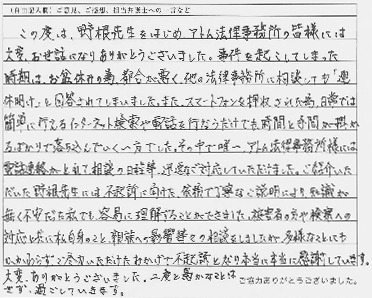 (自由記入欄)ご意見、ご感想、担当弁護士への一言など
この度は、野根先生をはじめ、アトム法律事務所の皆様には
大変お世話になりありがとうございました。事件を起こしてしまった
時期は、お盆休みの為、都合が悪く、他の法律事務所に相談しても「連
休明け」と回答されてしまいました。また、スマートフォンを押収された為、日常では
簡単に行えるインターネット検索や電話を行なうだけでも時間と手間が掛か
るばかりで落ち込んでいく一方でした。その中で唯一、アトム法律事務所様には
電話連絡がとれて相談の日程等、迅速に対応していただけました。ご紹介いた
だいた野根先生には不起訴に向けた、依頼で丁寧なご説明により知識が
無く不安だった私でも、容易に理解することができました。被害者の方や検察への
対応と共に私自身のこと、親族への影響等々の相談をしましたが、多様なことにも
かかわらずご尽力いただけたおかげで不起訴となり本当に本当に感謝しています。
大変、ありがとうございました。二度と愚かなことは
せず、過ごしていきます。
ご協力ありがとうございました。